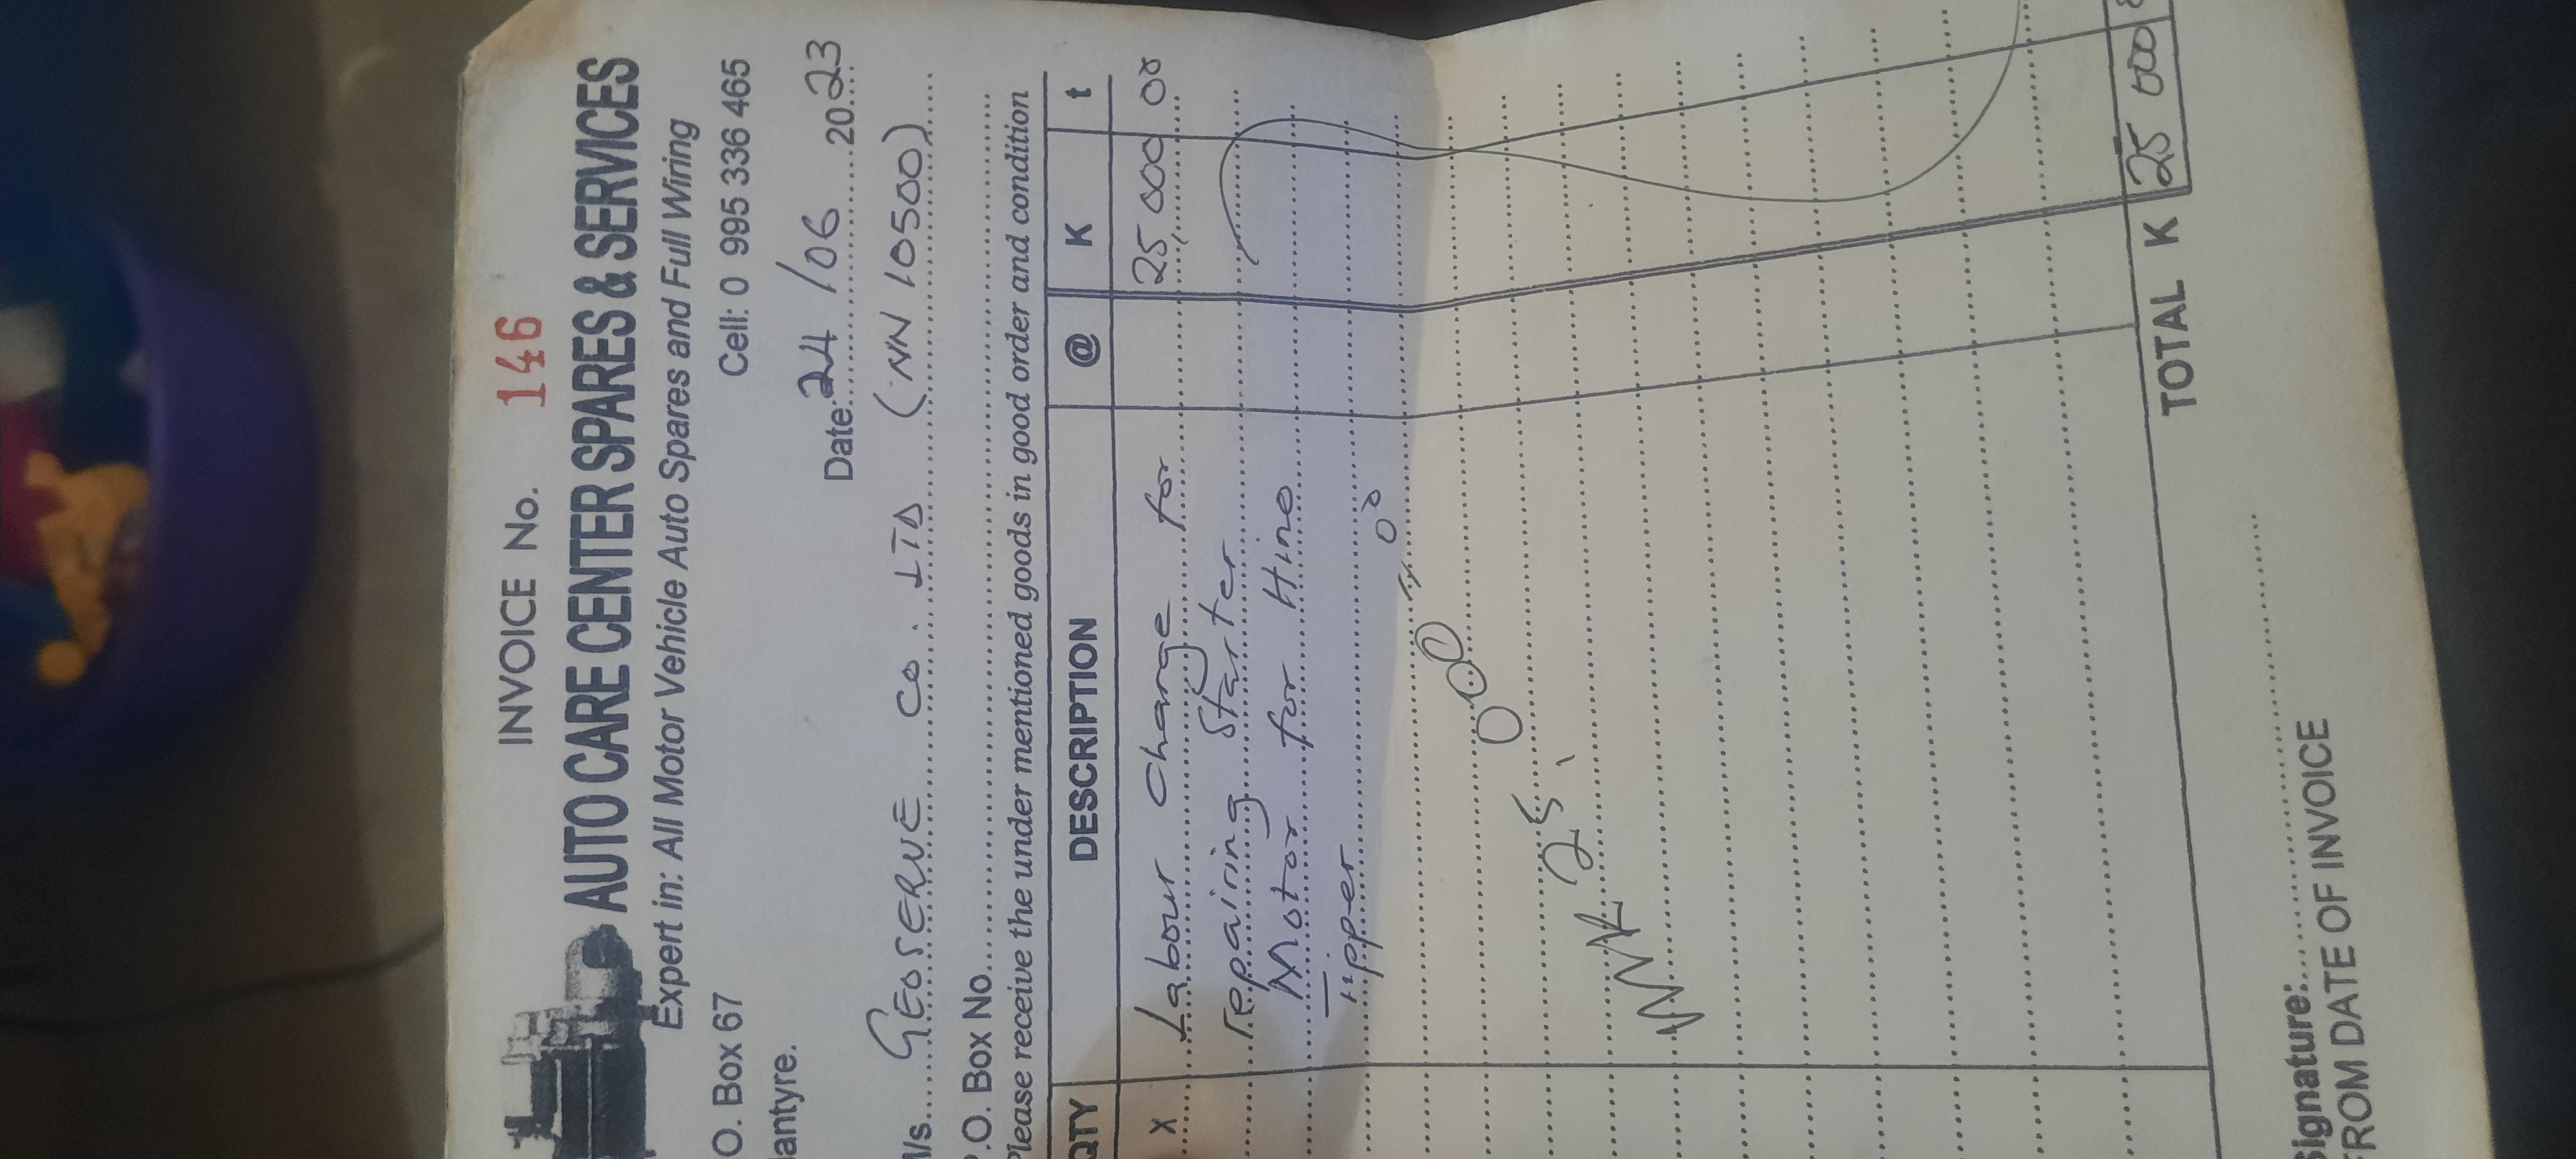 INVOICE No. 146
AUTO CARE CENTER SPARES & SERVICES
Expert in: All Motor Vehicle Auto Spares and Full Wiring
.O. Box 67
Cell: 0 995 336 465
lantyre.
Date: 24/06 2023
/s. GEOSERVE CO. LTD (NN 10500)
P.O. Box No.
Please receive the under mentioned goods in good order and condition
QTY DESCRIPTION @ K t
X Labour Charge for 25,000 00
repairing Starter
Motor for Hino
Tipper
MK 25,000 = 00
TOTAL K 25 000
Signature:
FROM DATE OF INVOICE